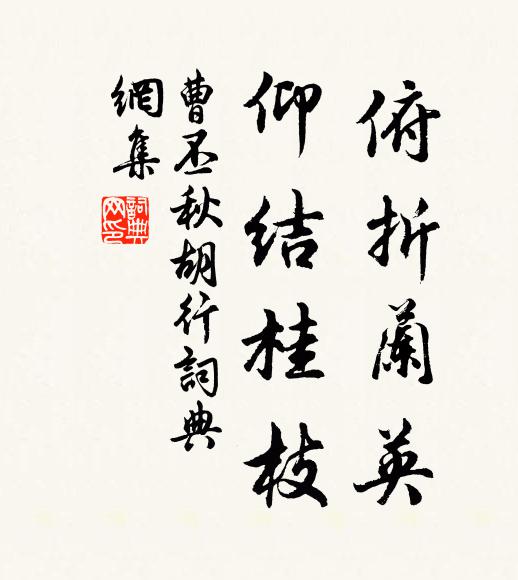 俯折蘭英
仰結桂枝
曹丕秋胡行詞典
網集
詞典
网印